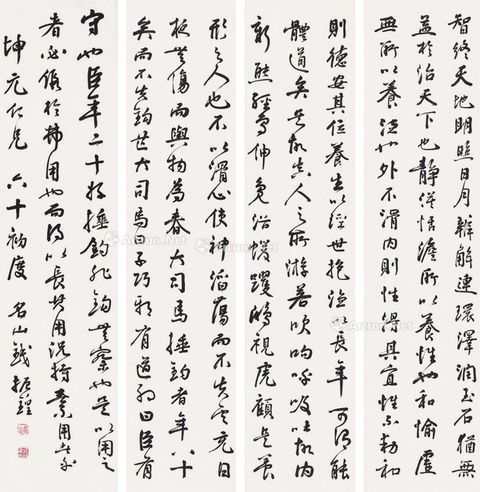 智終天地明照日月辯解連環澤潤玉石猶無
益於治天下也靜漠恬澹所以養性也和愉虛
無所以養德也外不滑內則性得其宜性不動和
則德安其位養生以經世抱德以長年可謂能
體道矣是故真人之所游若吹呴呼吸吐故內
新熊經鳥伸鳧浴蝯躍鴟視虎顧是養
形之人也不以滑心使神滔蕩而不失其充日
夜無傷而與物為春大司馬捶鈎者年八十
矣而不失鈎芒大司馬曰子巧邪有道邪曰臣有
守也臣年二十好捶鈎非鈎無察也是以用之
者必假於弗用也而得以長其用況持無不用者乎
坤元仁兄六十初度 名山錢振鍠